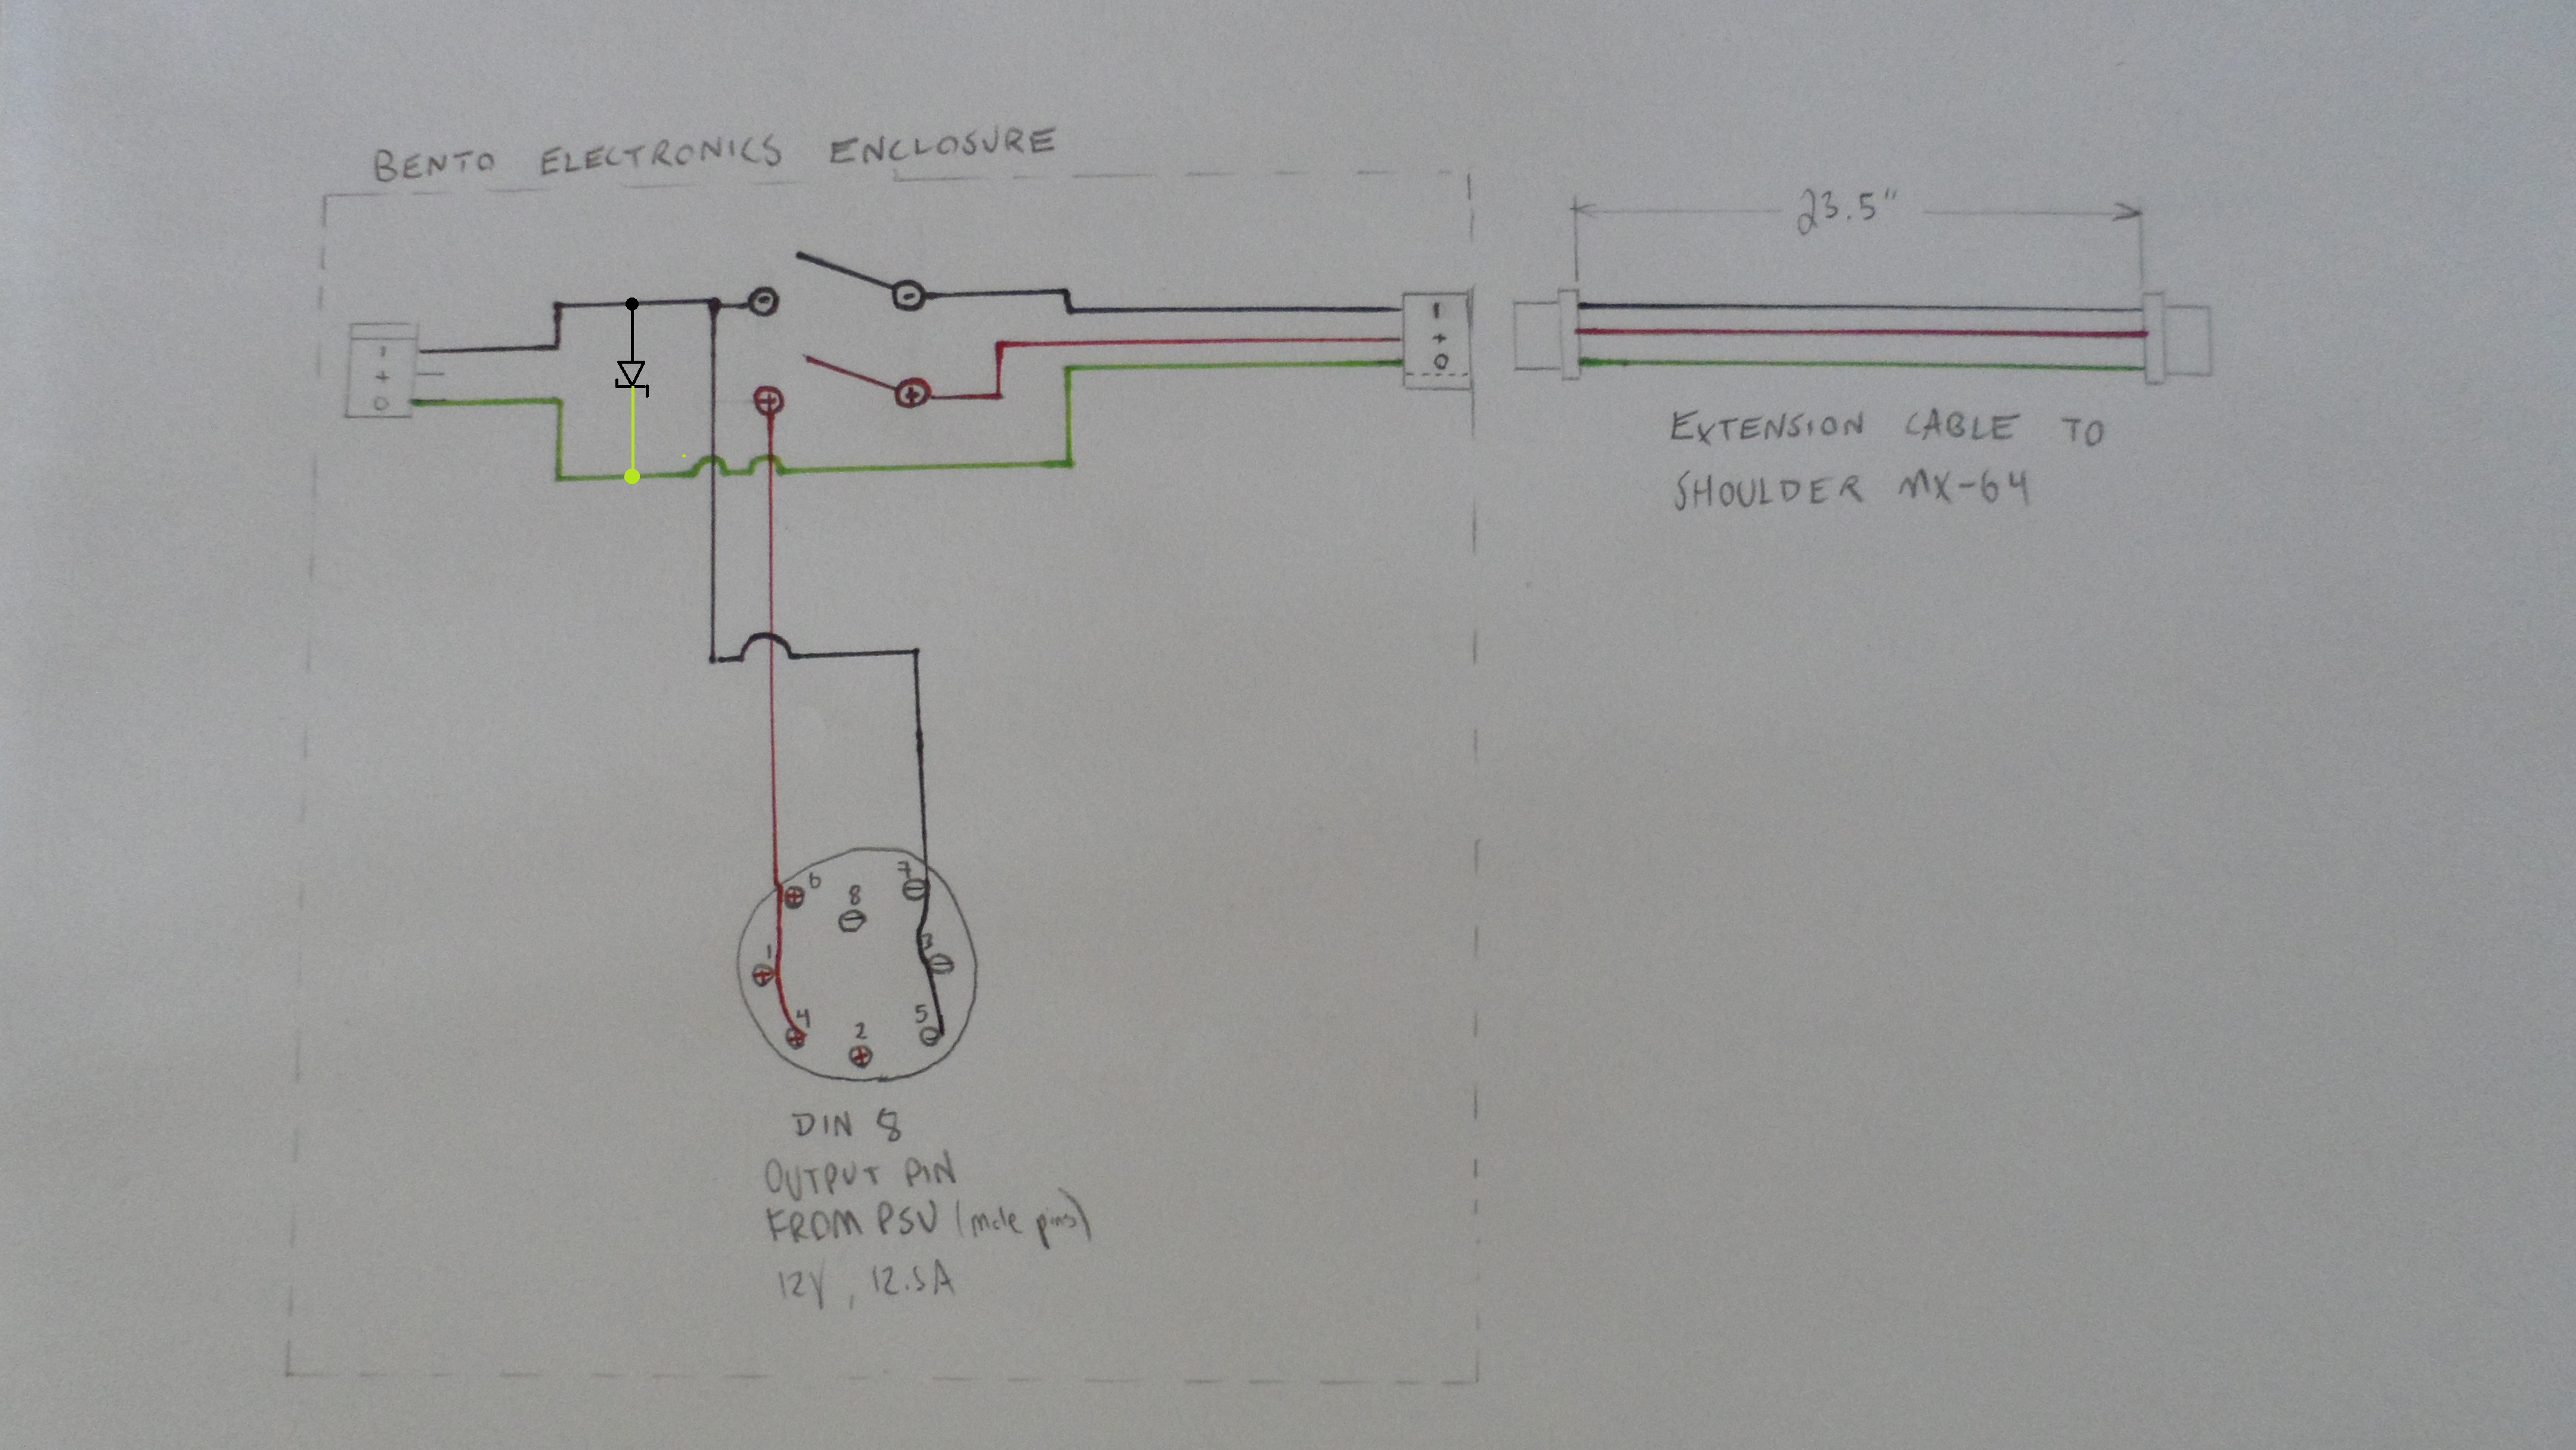 BENTO ELECTRONICS ENCLOSURE
23.5"
-
+
O
-
+
-
+
-
+
O
EXTENSION CABLE TO
SHOULDER MX-64
6
8
7
1
3
4
2
5
DIN 8
OUTPUT PIN
FROM PSU (male pins)
12V, 12.5A